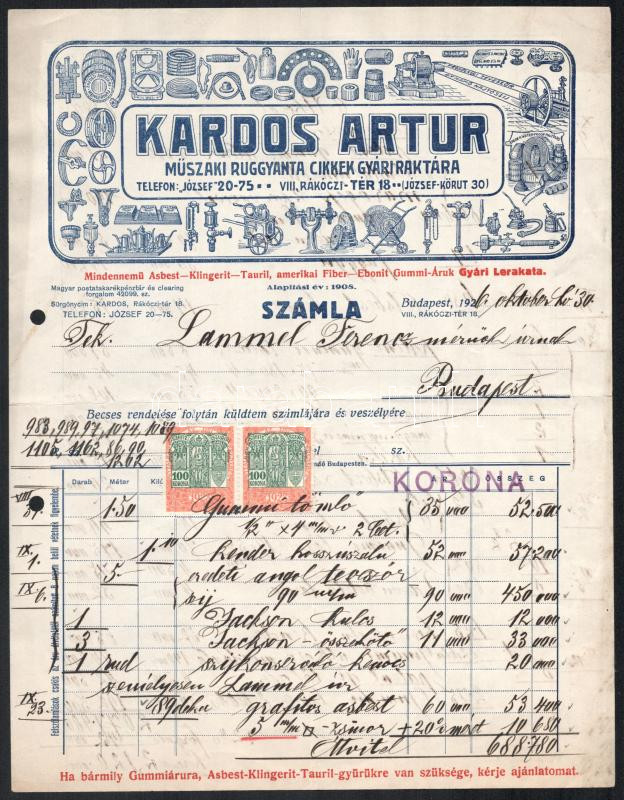 KARDOS ARTUR
MŰSZAKI RUGGYANTA CIKKEK GYÁRI RAKTÁRA
TELEFON: JÓZSEF 20-75 VIII, RÁKÓCZI-TÉR 18 (JÓZSEF-KÖRUT 30)
Mindennemű Asbest—Klingerit—Tauril, amerikai Fiber—Ebonit Gummi-Áruk Gyári Lerakata.
Magyar postatakarékpénztár és clearing
forgalom 42099. sz.
Sürgönycím: KARDOS, Rákóczi-tér 18.
TELEFON: JÓZSEF 20—75.
Alapítási év: 1908.
SZÁMLA
Budapest, 1926 október hó 30
VIII., RÁKÓCZI-TÉR 18.
Tek. Lammel Ferencz mérnök úrnak
Budapest.
Becses rendelése folytán küldtem számlájára és veszélyére
983, 989, 97, 1074, 1089
1105, 1162, 86, 90,
1262
sz.
Budapesten.
100 100
KORONA
Darab Méter Kiló ÖSSZEG
VIII 31. 1·50 Gummi tömlő 35 000 52.500
1/2" x 4 m/m 2 bet.
IX. 1. 1.10 kender hosszúszálu 52 000 57.200
5 eredeti angol teveszőr
IX. 6. szíj 90 m/m 90 000 450 000
1 Jackson kulcs 12 000 12 000
3 Jackson-összekötő 11 000 33 000
1 rud szíjkonzerváló kenőcs 20 000
személyesen Lammel úr
IX. 23. 89 deka grafitos asbest 60 000 53 400
5 m/m zsinor +20% 10 680
Átvitel 688.780
Ha bármily Gummiárura, Asbest-Klingerit-Tauril-gyürükre van szüksége, kérje ajánlatomat.